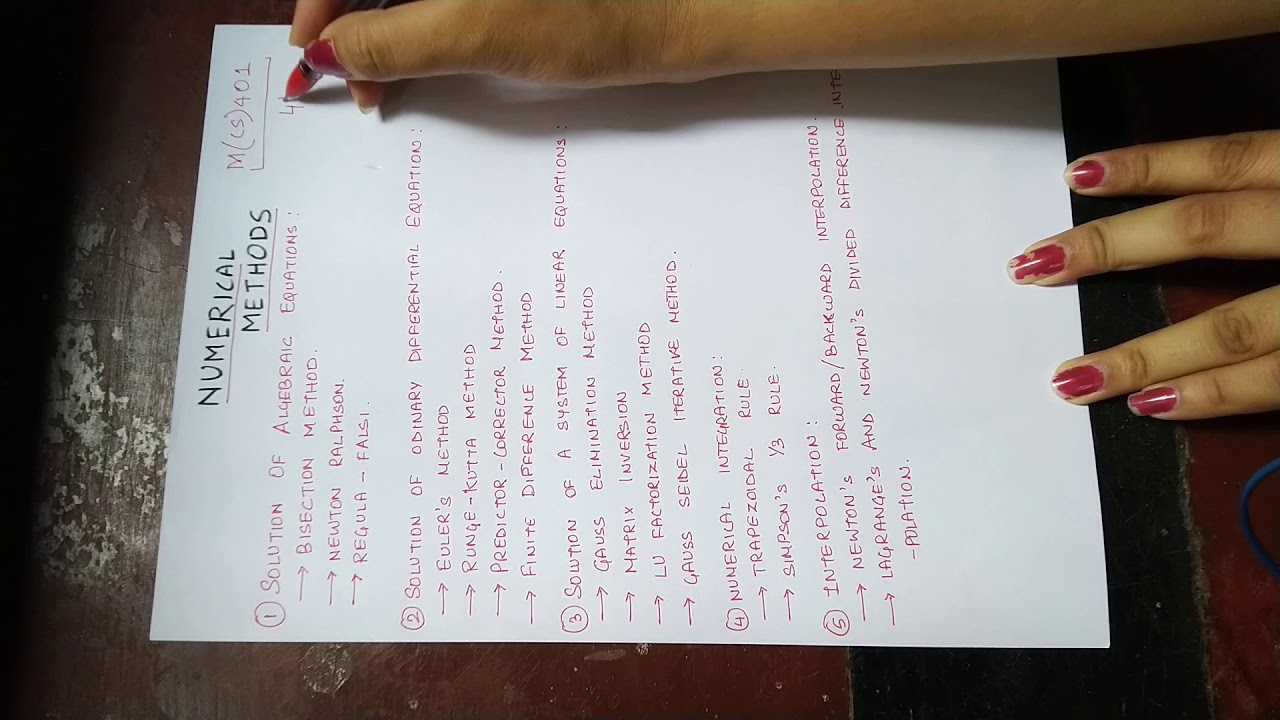 NUMERICAL
METHODS
M(CS)401
4
① SOLUTION OF ALGEBRAIC EQUATIONS:
→ BISECTION METHOD.
→ NEWTON RALPHSON.
→ REGULA-FALSI.
② SOLUTION OF ODINARY DIFFERENTIAL EQUATION:
→ EULER'S METHOD
→ RUNGE-KUTTA METHOD
→ PREDICTOR-CORRECTOR METHOD.
→ FINITE DIFFERENCE METHOD
③ SOLUTION OF A SYSTEM OF LINEAR EQUATIONS:
→ GAUSS ELIMINATION METHOD
→ MATRIX INVERSION
→ LU FACTORIZATION METHOD
→ GAUSS SEIDEL ITERATIVE METHOD.
④ NUMERICAL INTEGRATION:
→ TRAPEZOIDAL RULE.
→ SIMPSON'S 1/3 RULE.
⑤ INTERPOLATION:
→ NEWTON'S FORWARD/BACKWARD INTERPOLATION.
→ LAGRANGE'S AND NEWTON'S DIVIDED DIFFERENCE INTE
-POLATION.